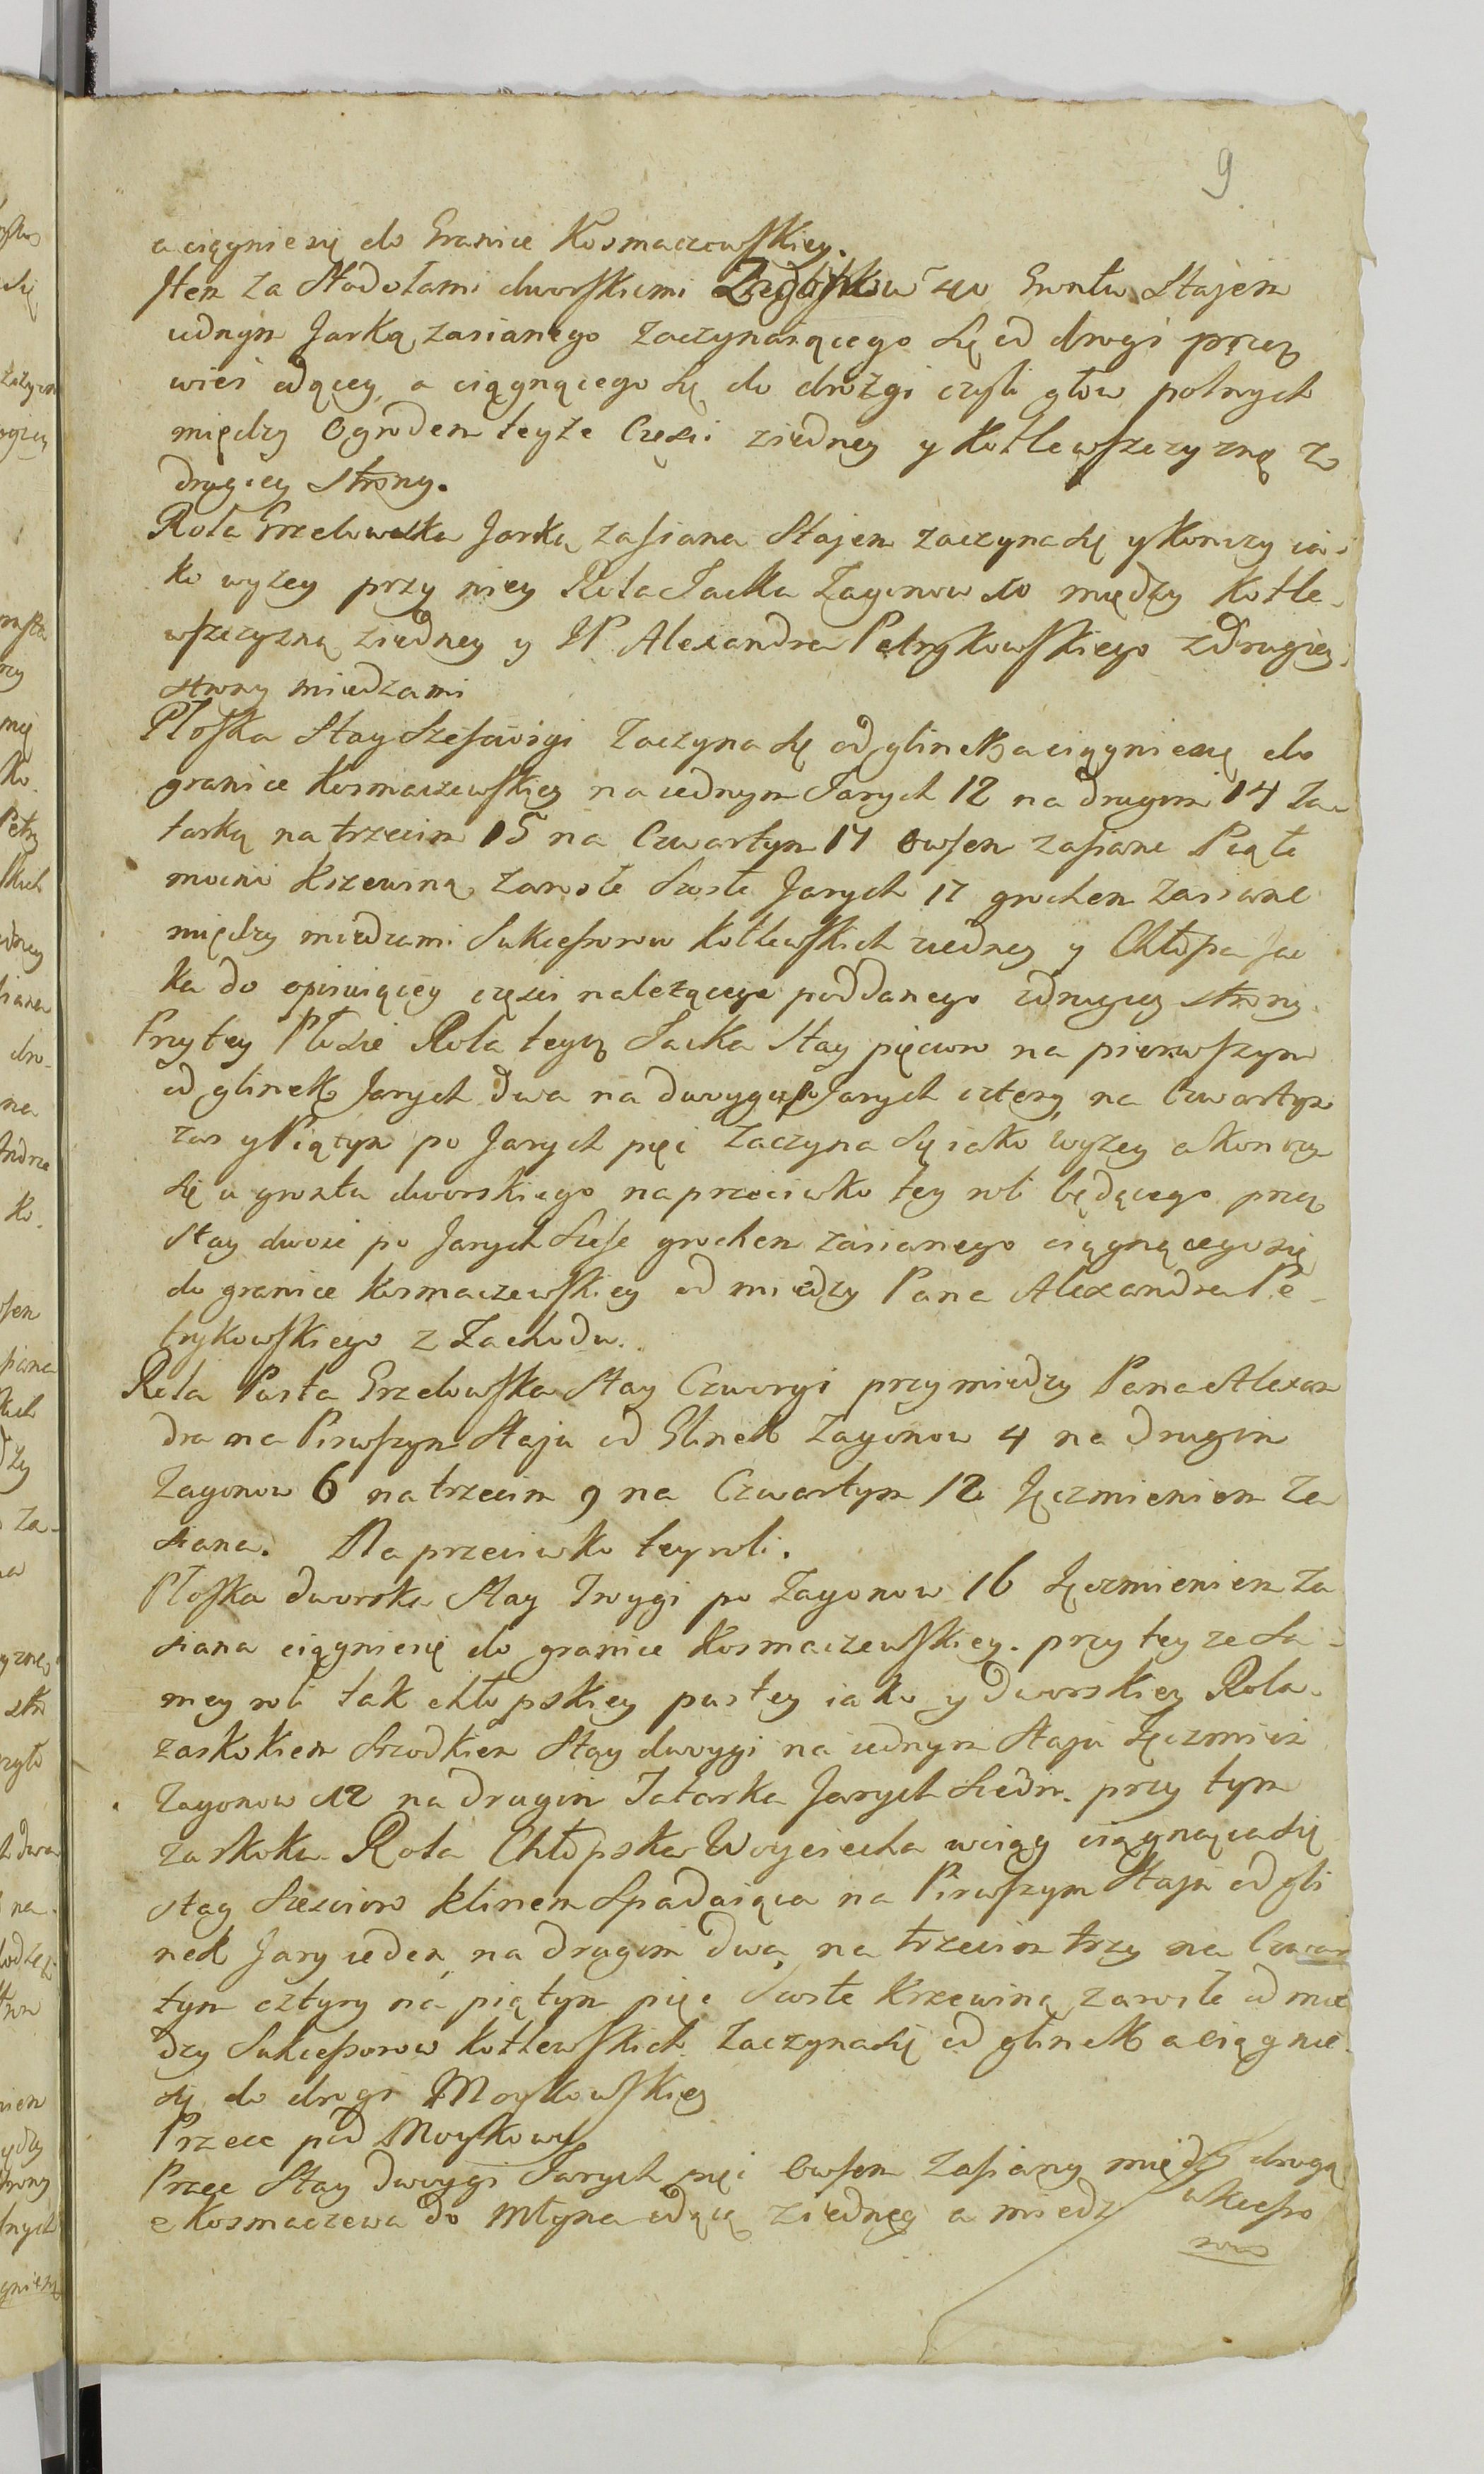 9
a ciągnie się do Granice Kosmaczewskiey.
Item za Stodołami dworskiemi 40 Gruntu Stajem
iednym Jarką zasianego zaczynaiącego się od drogi przez
wieś idącey, a ciągnącego się do drożgi czyli głow polnych
między Ogrodem teyże Części ziedney y Kotlewszczyzną z
drugiey strony.
Rola Grzelowska Jarką zasiana Stajem zaczyna się y konczy ia-
ko wyzey przy niey Rola Jacka Zagonow 10 między Kotle-
wszczyzną ziedney y JP. Alexandra Petrykowskiego zdrugiey
strony miedzami
Płoska Stay Sześciorgi Zaczyna się od glinek a ciągnie się do
granice Kosmaczewskiey na iednym Jarych 12 na drugim 14 Ta-
tarką na trzecim 15 na Czwartym 17 owsem zasiane Piąte
mocno Krzewiną zarosłe Szoste Jarych 17 grochem zasiane
między miedzami Sukcessorow Kotlewskich ziedney y Chłopa Jac
ka do opisuiącey części należącego poddanego zdrugiey strony.
Przy tey Płosie Rola tegoż Jacka Stay pięcioro na pierwszym
od glinek Jarych dwa na dwoygu po Jarych cztery na Czwartym
zas y Piątym po Jarych pięć Zaczyna się iako wyzey a konczy
się u grontu dworskiego naprzeciwko tey roli będącego przez
Stay dwoie po Jarych Sześć grochem zasianego ciągnącego się
do granice Kosmaczewskiey od miedzy Pana Alexandra Pe-
trykowskiego z Zachodu.
Rola Pusta Grzelowska Stay Czworgi przy miedzy Pana Alexan
dra na Pirwszym Staju od Glinek Zagonow 4 na drugim
Zagonow 6 na trzecim 9 na Czwartym 12 Jęczmieniem Za
siana. Naprzeciwko tey roli.
Płoska dworska Stay Troygi po Zagonow 16 Jęczmieniem Za
siana ciągnie się do granice Kosmaczewskiey. przy teyze Sa-
mey roli tak chłopskiey pustey iako y dworskiey Rola
zaskokiem Srzodkiem Stay dwoygi na iednym Staju Jęczmień
Zagonow 12 na drugim Tatarka Jarych Siedm. przy tym
zaskoku Rola Chłopska Woyciecha wciąż ciągnąca się
Stay Sześcioro klinem Spadaiąca na Pirwszym Staju od gli
nek Jary ieden, na drugim dwa, na trzecim trzy na Czwar
tym cztyry na piątym pięć Szoste Krzewiną zarosłe od mie
dzy Sukcessorow Kotlewskich Zaczyna się od glinek a ciągnie
się do drogi Moykowskiey
Przece pod Moykowy
Przece Stay dwoygi Jarych pięć owsem Zasiany między drogą
z Kosmaczewa do Młyna idącą ziedney a miedzą ukcesso
row